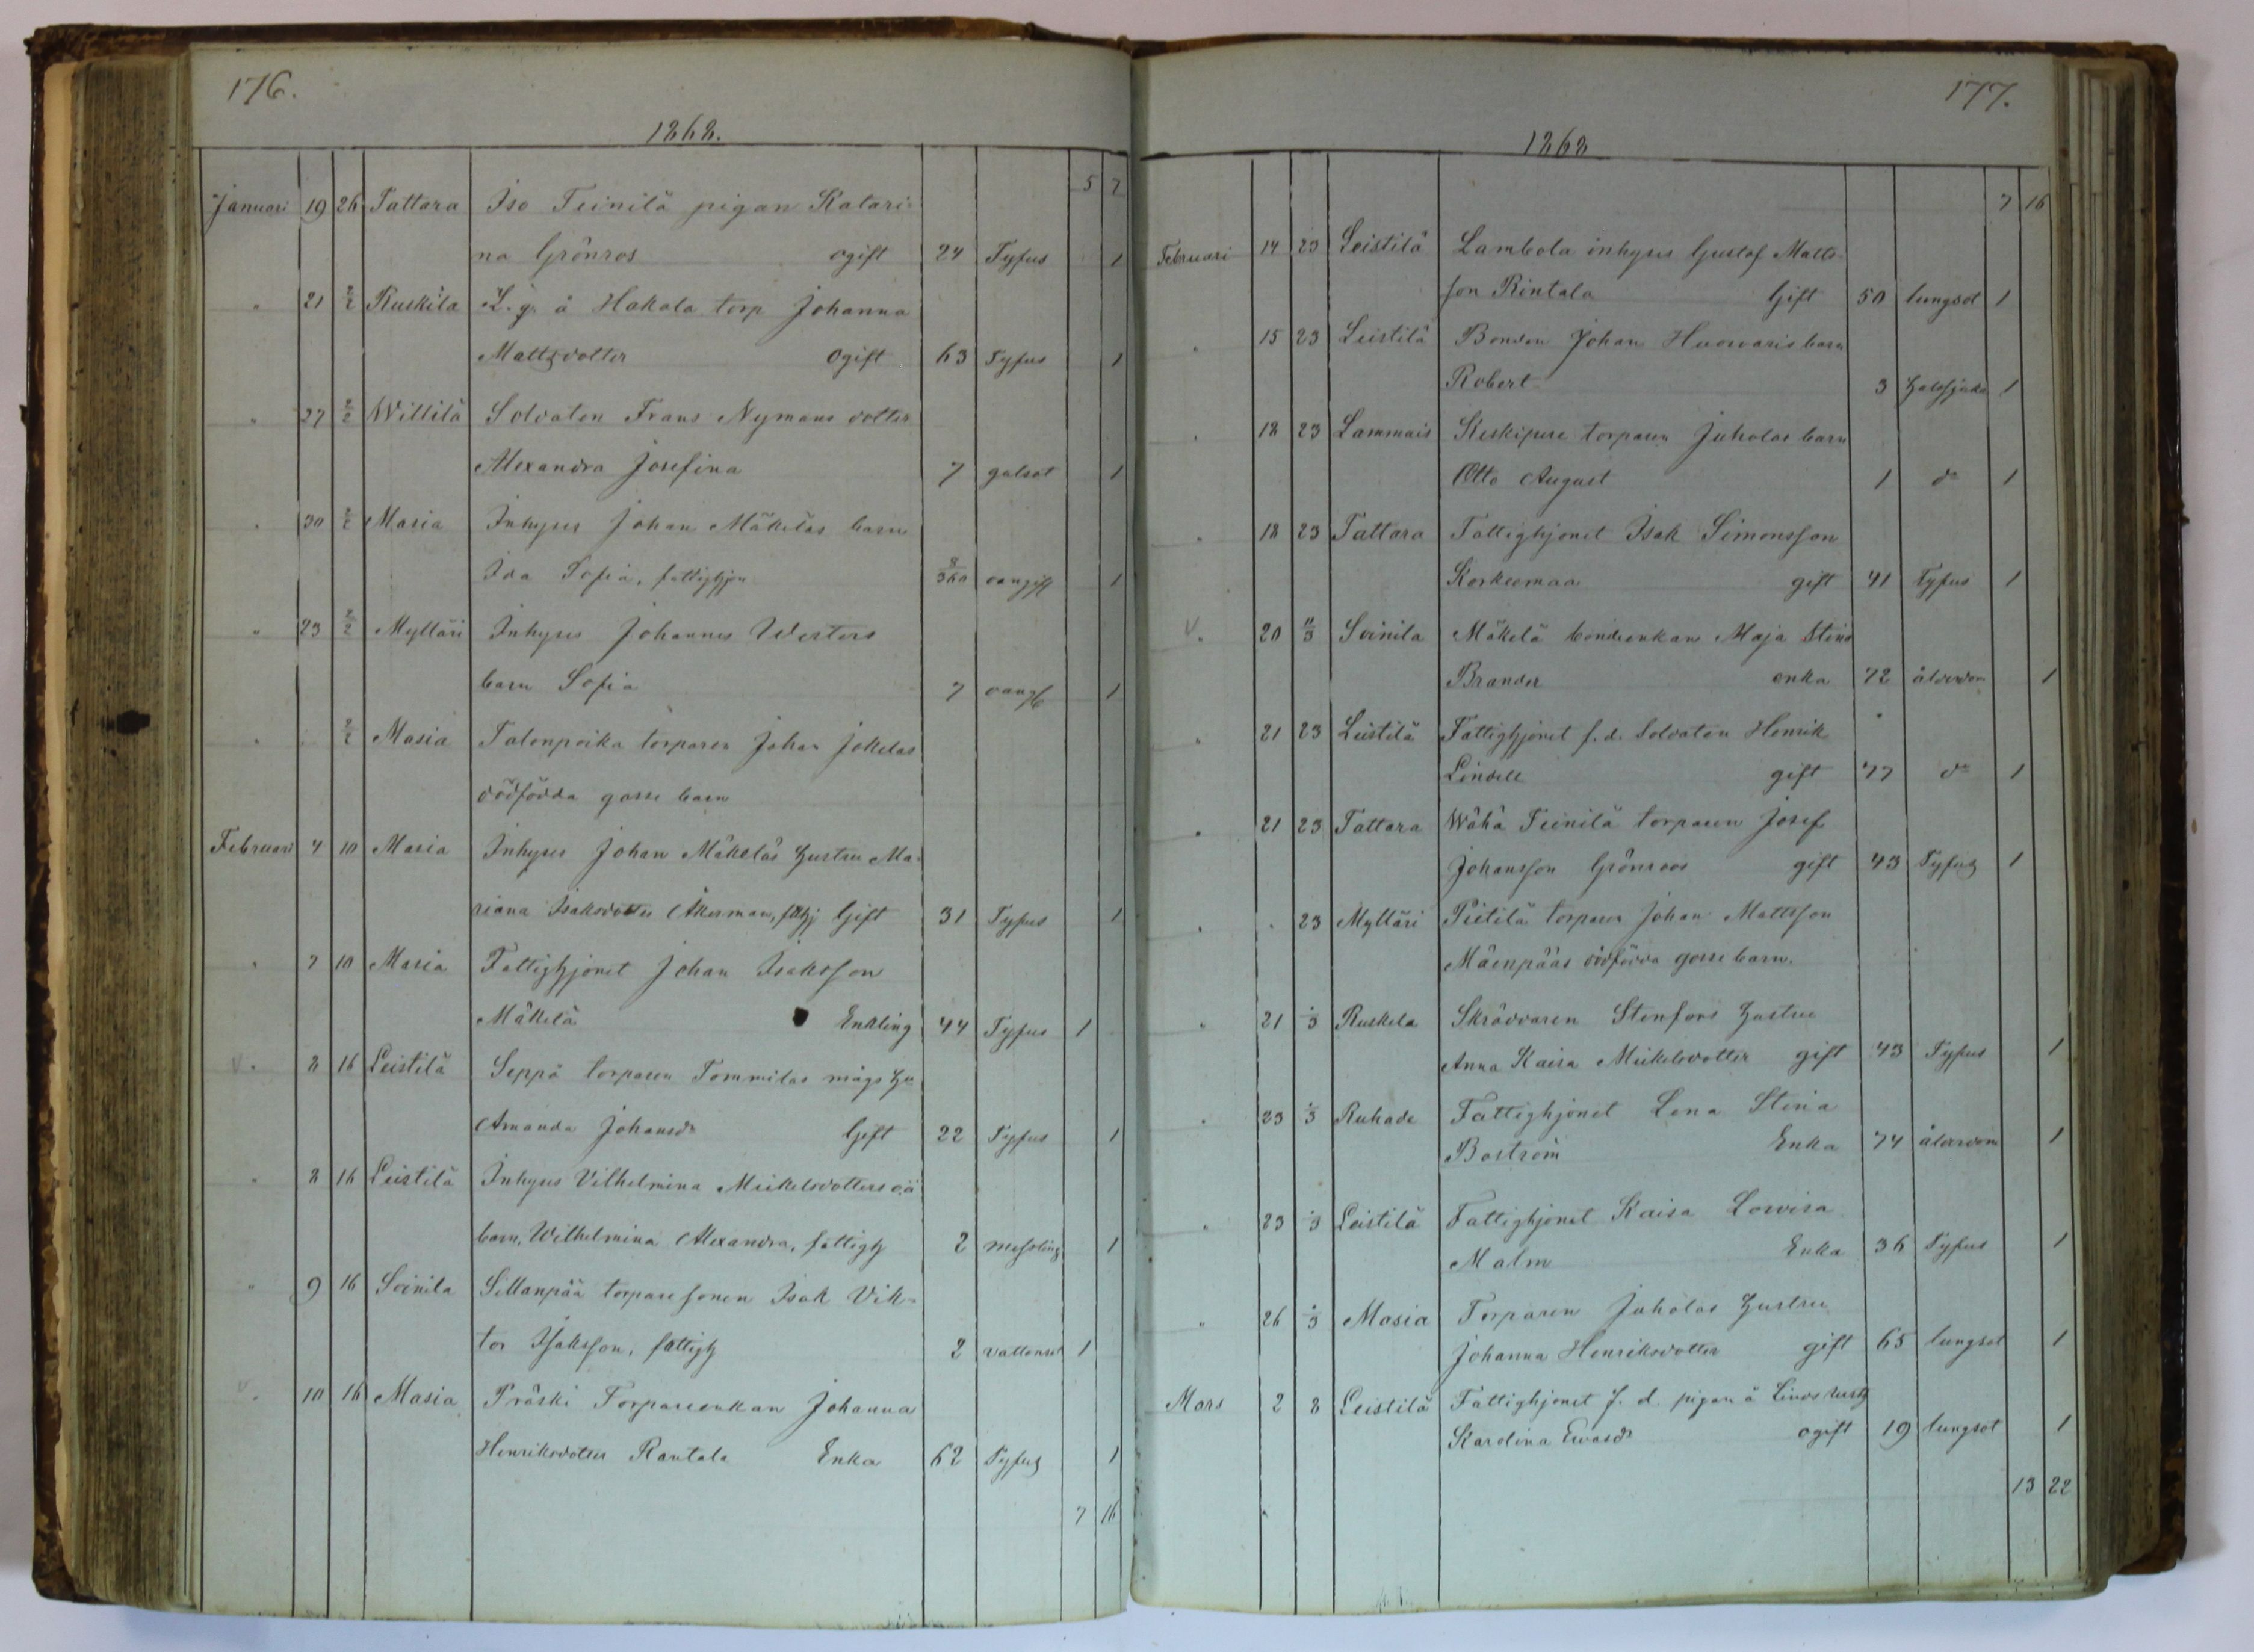 176.
1868.
5 7
Januari 19 26 Tattara Iso Teinilä pigan Katari-
na Grönros ogift 24 Typus 1
" 21 2/2 Ruskila L. g. å Hakala torp Johanna
Mattsdotter Ogift 63 Typus 1
" 27 2/2 Willilä Soldaten Frans Nymans dotter
Alexandra Josefina 7 gulsot 1
" 30 2/2 Masia Inhyses Johan Mäkeläs barn
Ida Sofia, fattighjon 8/360 oangiff 1
" 23 2/2 Mylläri Inhyses Johannes Westers
barn Sofia 7 oangf 1
" 2/2 Masia Talonpoika torparen Johan Jokelas
dödfödda gosse barn
Februari 4 10 Masia Inhyses Johan Mäkeläs hustru Ma-
riana Isaksdotter Åkerman, ftghj Gift 31 Typus 1
" 7 10 Masia Fattighjonet Johan Isaksson
Mäkelä Enkling 44 Typus 1
V " 8 16 Leistilä Seppä torparen Tommilas mågs hu
Amanda Johansdr Gift 22 Typus 1
" 8 16 Leistilä Inhyses Vilhelmina Mickelsdotters oä
barn, Wilhelmina Alexandra, fattigh 2 messling 1
" 9 16 Soinila Sillanpää torparesonen Isak Vik-
tor Isaksson, fattigh 2 vattensot 1
V " 10 16 Masia Präski Torpareenkan Johanna
Henriksdotter Rantala Enka 62 Typus 1
7 16
177.
1868
7 16
Februari 14 23 Leistilä Lambola inhyses Gustaf Matts-
son Rintala Gift 50 lungsot 1
" 15 23 Leistilä Bonden Johan Huovaris barn
Robert 3 halssjuka 1
" 18 23 Lammais Keskipere torparen Juholas barn
Otto August 1 do 1
" 18 23 Tattara Fattighjonet Isak Simonsson
Korkeemaa gift 41 Typus 1
V " 20 11/3 Soinila Mäkelä bondeenkan Maja Stina
Brander enka 72 ålderdom 1
" 21 23 Leistilä Fattighjonet f. d. Soldaten Henrik
Lindell gift 77 do 1
" 21 23 Tattara Wähä Teinilä torparen Josef
Johansson Grönroos gift 43 Typus 1
" " 23 Mylläri Pietilä torparen Johan Mattsson
Mäenpääs dödfödda gosse barn.
" 21 1/3 Ruskela Skräddaren Stenfors hustru
Anna Kaisa Mickelsdotter gift 43 Typus 1
" 23 1/3 Ruhade Fattighjonet Lena Stina
Boström Enka 74 ålderdom 1
" 23 1/3 Leistilä Fattighjonet Kaisa Lovisa
Malm Enka 36 Typus 1
" 26 1/3 Masia Torparen Juholas hustru
Johanna Henriksdotter gift 65 lungsot 1
Mars 2 8 Leistilä Fattighjonet f. d. pigan å
Karolina Ewasdr ogift 19 lungsot 1
13 22